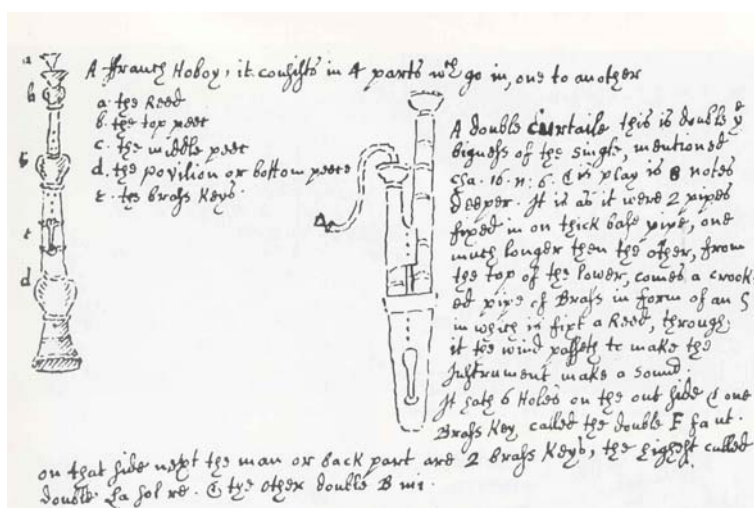 A ffrench Hoboy, it consists in 4 parts wch go in, one to another
a. the Reed
b. the top peec
c. the middle peec
d. the povilion or bottom peece
e. the brass Keys.
a
b
b
c
d
A double Curtaile this is double ye
bigness of the single, mentioned
cha. 16. n: 6. & is play is 8 notes
deeper. It is as it were 2 pipes
fixed in on thick base pipe, one
much longer then the other, from
the top of the lower, comes a crook-
ed pipe of Brass in form of an S
in which is fixt a Reed, through
it the wind passeth to make the
Instrument make a sound.
It hath 6 Holes on the out side & one
Brass Key called the double F fa ut.
on that side next the man or back part are 2 brass Keys, the highest called
double La sol re. & the other double B mi.